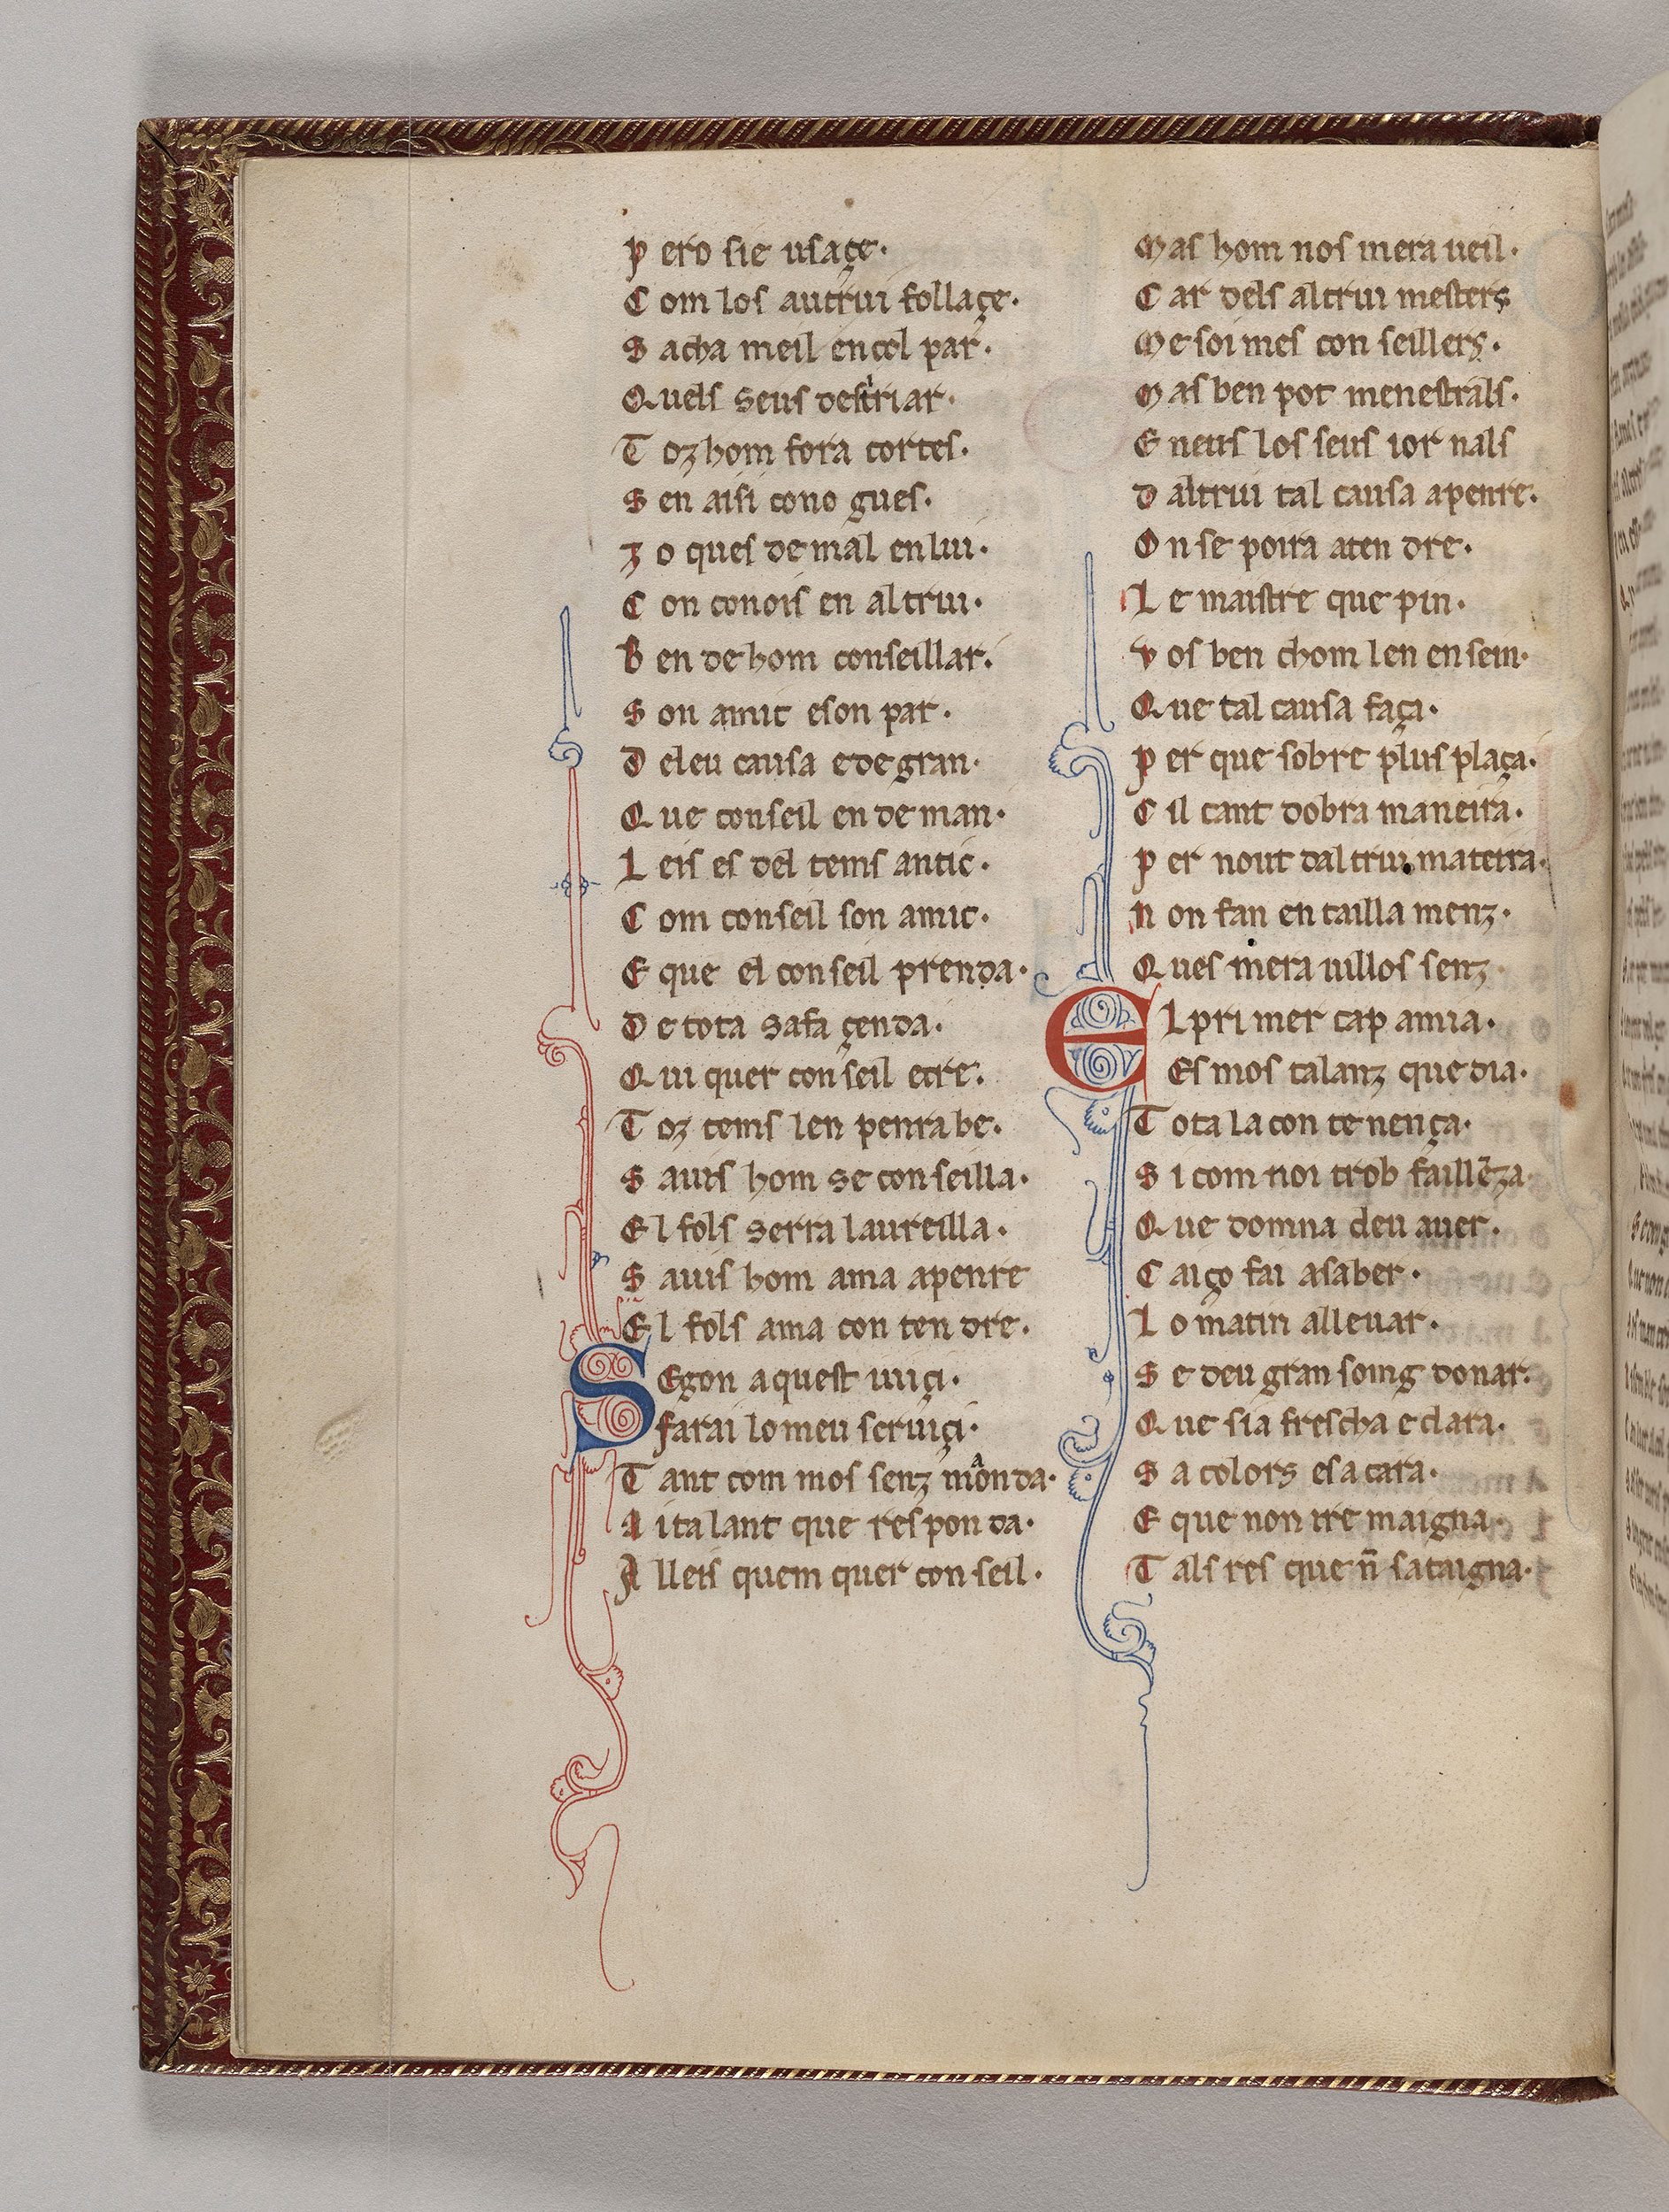 P ero sie usaçe·
C om los autrui follaçe·
S acha meil en cel par·
Q uels seus destriar·
T oz hom fora cortes·
S en aisi cono gues·
Z o ques de mal en lui·
C on conois en altrui·
B en de hom conseillar·
S on amic e son par·
D e leu causa e de gran·
Q ue conseil en de man·
L eis es del tems antic·
C om conseil son amic·
E que el conseil prenda·
D e tota sa fa çenda·
Q ui quer conseil e cre·
T oz tems len penra be·
S auis hom se conseilla·
E l fols serra laureilla·
S auis hom ama apenre
E l fols ama con ten dre·
S Egon aquest uiçi·
farai lo meu seruiçi·
T ant com mos senz maonda·
A i talant que res ponda·
A lleis quem quer con seil·
M as hom nos mera ueil·
C ar dels altrui mesters
M e soi mes con seillers·
M as ben pot menestrals·
E neus los seus ior nals
D altrui tal causa apenre·
O n se poira aten dre·
L e maistre que pin·
V os ben chom len en sein·
Q ue tal causa faça·
P er que sobre plus plaça·
C il cant dobra maneira·
P er nout daltrui mateira·
N on fan en tailla menz·
Q ues mera uillos senz·
E L pri mer cap amia·
Es mos talanz que dia·
T ota la con te nença·
S i com noi trob faillēza·
Q ue domna deu auer·
C aiço fai a saber·
L o matin alleuar·
S e deu gran soing donar·
Q ue sia frescha e clara·
S a colors e sa cara·
E que non ire maigna·
T als res que n̄ sataigna·